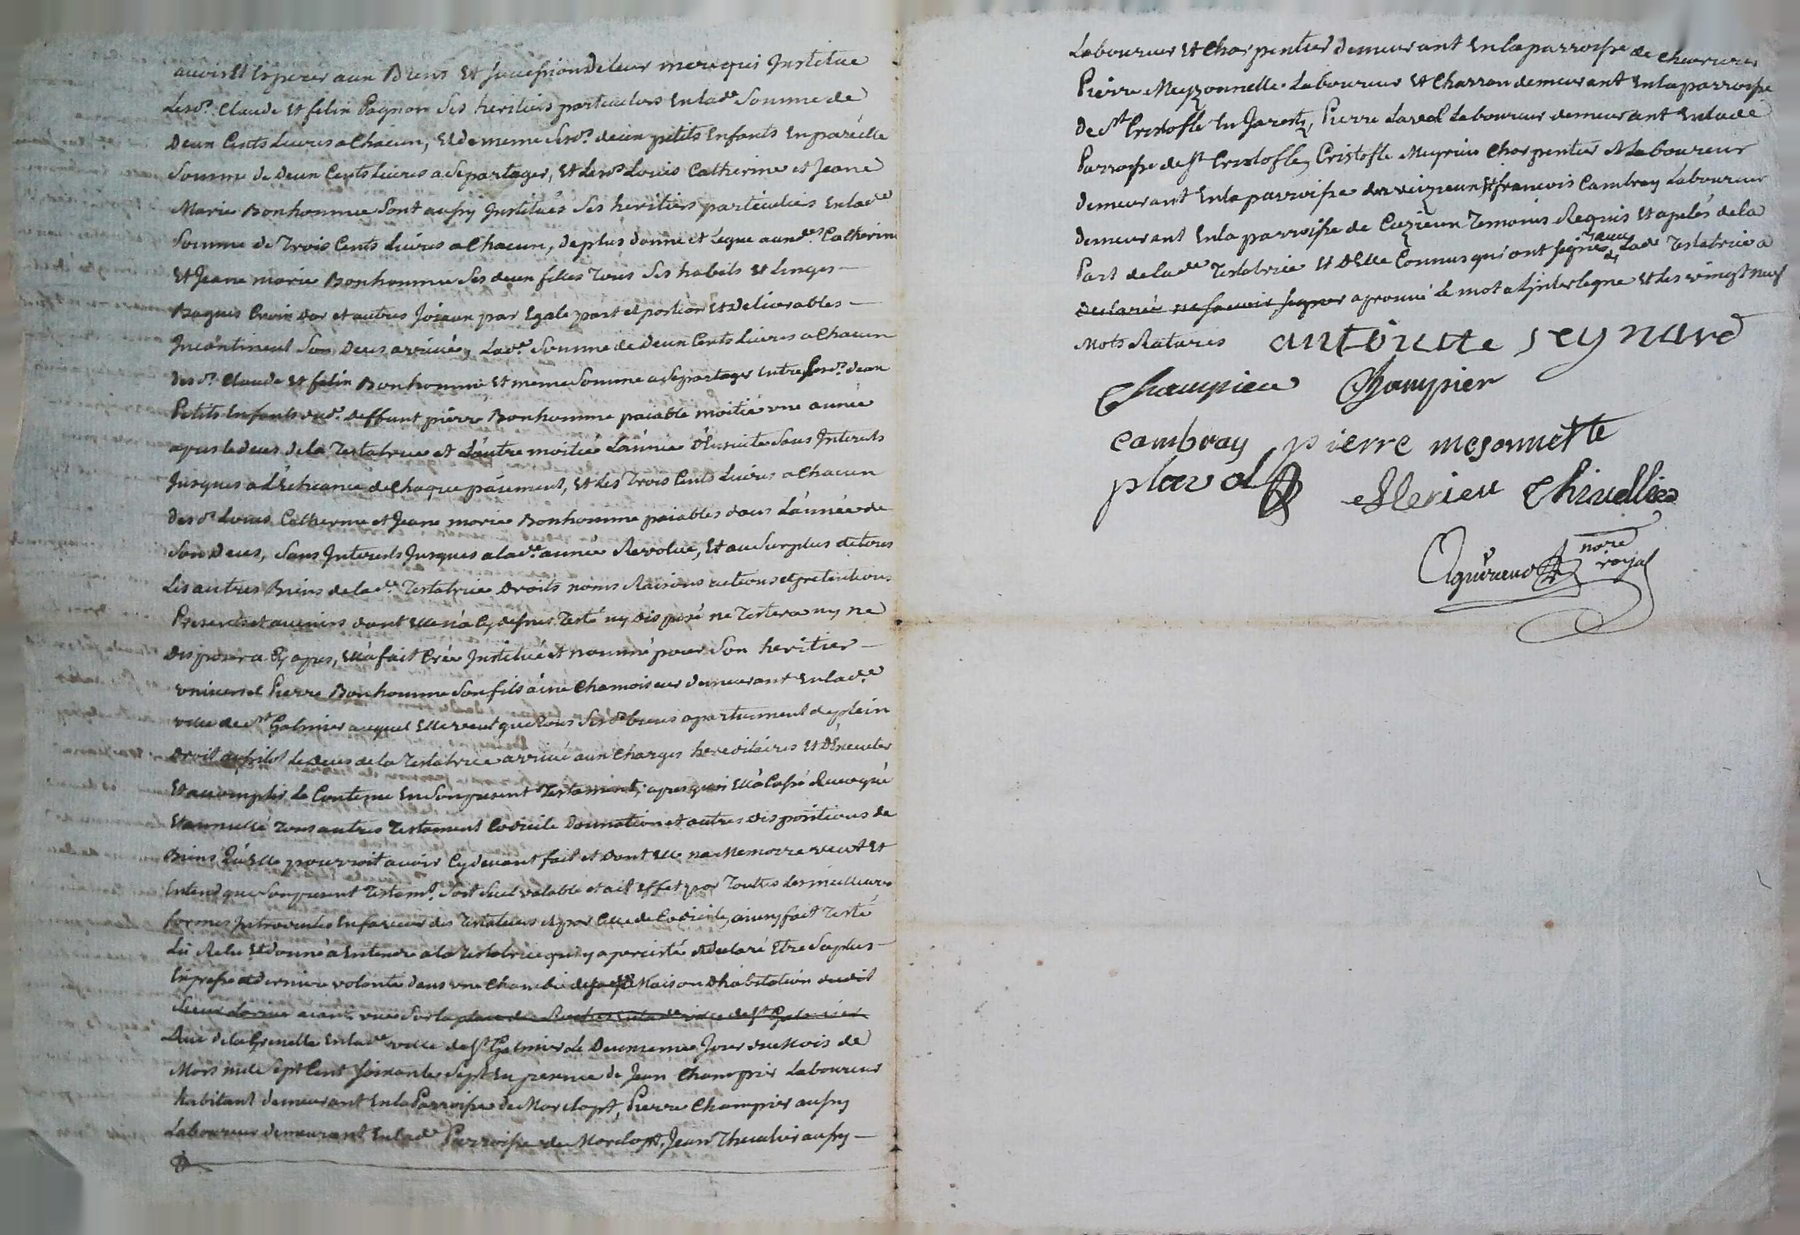 avoir et esperer aux Biens et succession de leur mere qui Institue
Lesd. Claude et felix Pagnon ses heritiers particuliers en lad. Somme de
Deux Cents Livres a Chacun, et de meme sesd. deux petits Enfants en pareille
Somme de deux Cents Livres a se partager, et lesd. Louis Catherine et Jeane
Marie Bonhomme sont aussy Institués ses heritiers particuliers en lad.
Somme de Trois Cents Livres a Chacun, de plus donne et Legue auxd. Catherine
et Jeane marie Bonhomme ses deux filles Tous ses habits et Linges
Bagues Croix d'or et autres Joieaux par Egale part et portion et Délivrables
Incontinent son deces arrivé, Lad. Somme de Deux Cents Livres a Chacun
desd. Claude et felix Bonhomme et meme somme a se partager entre sesd. deux
Petits Enfants dud. deffunt pierre Bonhomme paiable moitié une année
apres le deces de la Testatrice et L'autre moitié L'année Ensuite sans Interets
Jusques a L'Echeance de Chaque paiement, et Les Trois Cents Livres a Chacun
desd. Louis Catherine et Jeane marie Bonhomme paiables dans L'année de
Son Deces, sans Interets Jusques a lad. année Revolue, et au surplus de tous
Les autres Biens de lad. Testatrice Droits noms Raisons actions et pretentions
Presents et avenirs dont Elle n'a Cy dessus Testé ny disposé ne Testera ny ne
disposera Cy apres, Ell'a fait Créé Institué et nommé pour Son heritier
universel Pierre Bonhomme son fils ainé Chamoiseur demeurant en lad.
ville de St Galmier auquel Elle veut que tous sesd. biens apartiennent de plein
Droit aussitot le deces de la Testatrice arrivé aux Charges hereditaires et D'Executer
et accomplir le Contenu en son present Testament, apres quoi Ell'a Cassé Revoqué
et annullé Tous autres Testament Codicile donnation et autres dispositions de
Biens qu'Elle pourroit avoir Cy devant fait et dont Elle n'a Memoire veut et
Entend que son present Testamt. soit seul valable et ait Effet par Toutes les meilleures
formes Introduites en faveur des Testateurs et par Celle de Codicile, ainsy fait Testé
Lû Relu et donné a Entendre a la Testatrice qui y a percisté et declaré Etre sa plus
Expresse et derniere volonté dans une Chambe de sa Maison d'habitation dudit
aiant vue sur la place des en lad. ville de St Galmier
Rue de la Grenette en lad. ville de St Galmier Le Deuxieme Jour du Mois de
Mars mille sept Cent soixante sept En presence de Jean Champier Laboureur
habitant demeurant en la Parroisse de Marclopt, Pierre Champier aussy
Laboureur demeurant en lad. Parroisse de Marclopt, Jean Thevelier aussy
Laboureur et Charpentier demeurant en la parroisse de Chevrieres
Pierre Meyzonnette Laboureur et Charron demeurant en la parroisse
de St Cristofle en Jarest, Pierre Laval Laboureur demeurant en lad.
Parroisse de St Cristofle, Cristofle Meyrieu Charpentier et Laboureur
demeurant en la parroisse de et francois Cambray Laboureur
demeurant en la parroisse de Cuzieu Temoins Requis et apelés de la
Part de lad. Testatrice et d'Elle Connus qui ont signés avec Lad. Testatrice a
declaré ne scavoir signer aprouvé le mot a L'interligne et les vingt neuf
Mots Raturés antoinette seynard
Champier Champier
Cambray pierre mesonnette
plaval Merieu Thivellier
Agniereno nore
royal